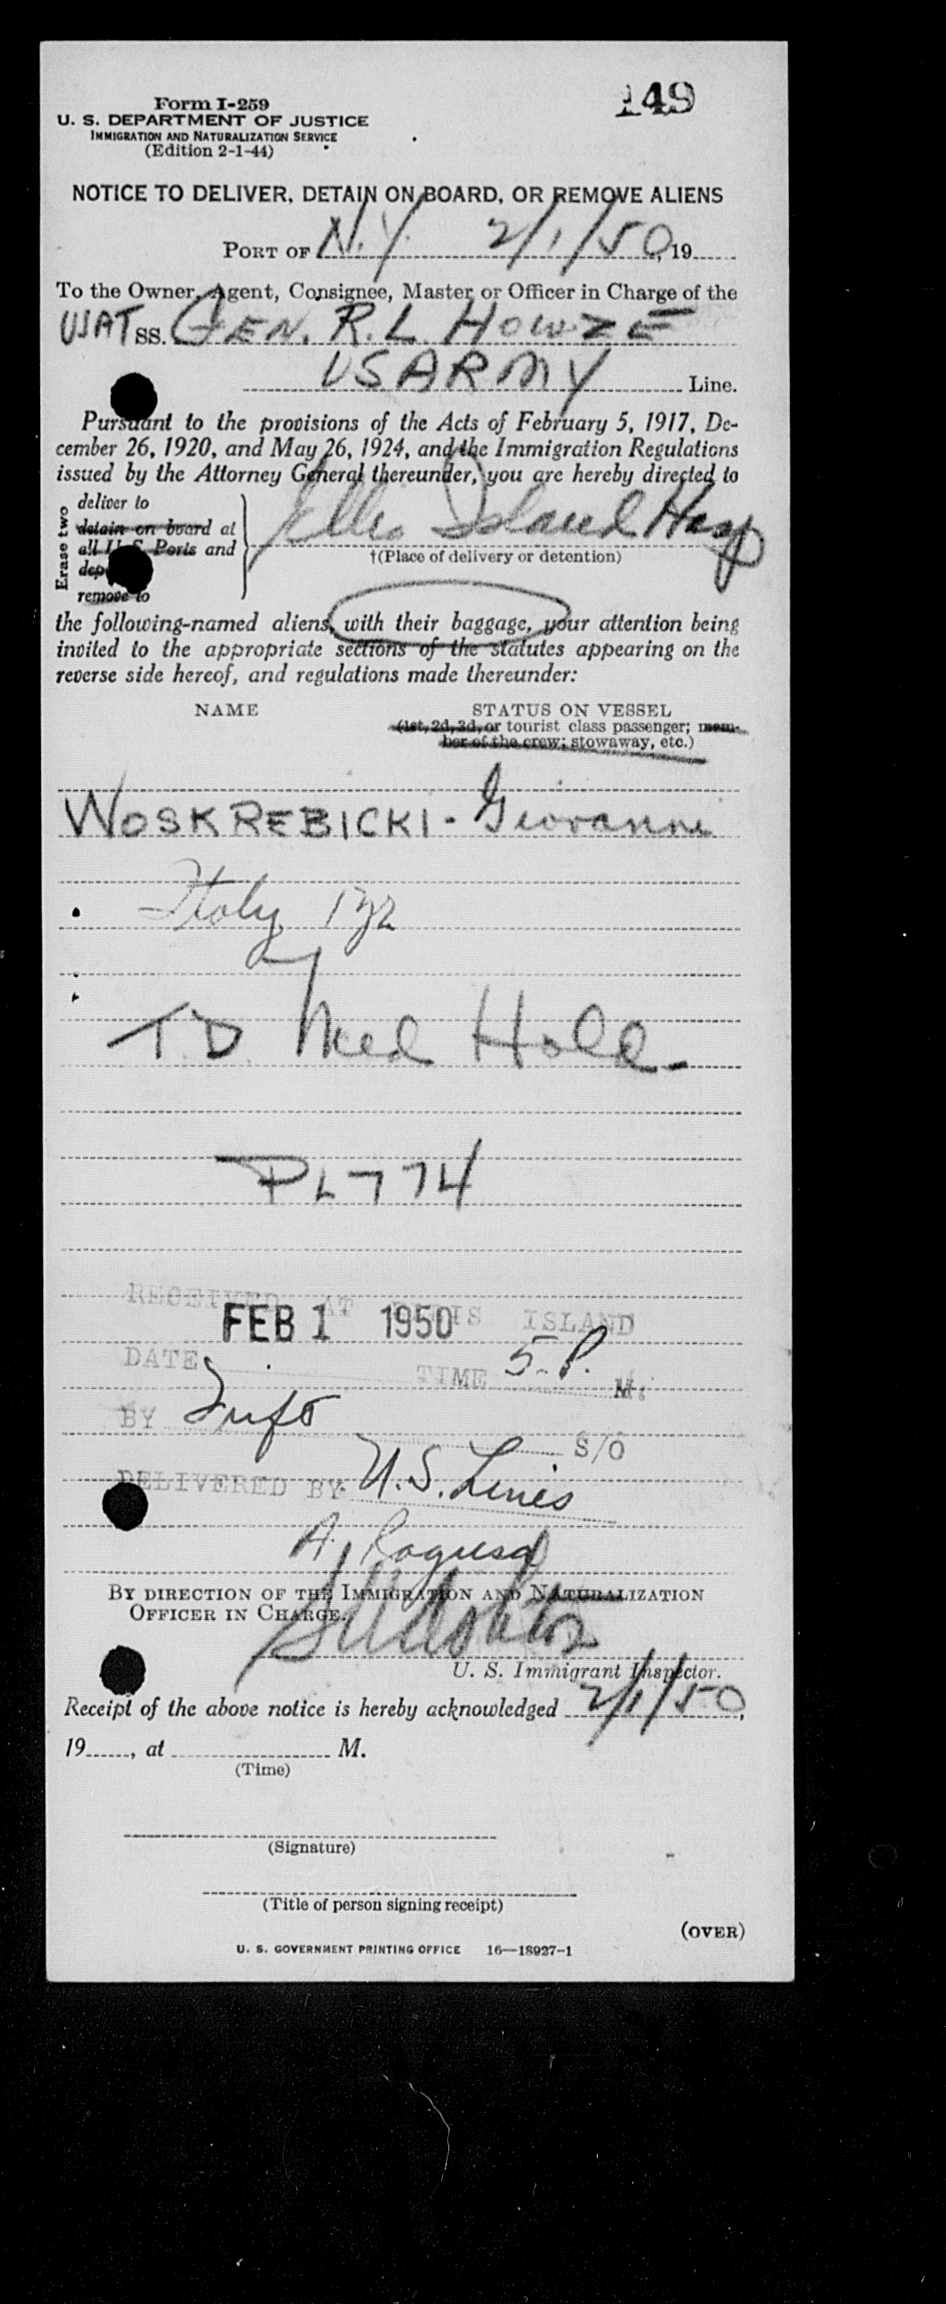 149
Form I-259
U. S. DEPARTMENT OF JUSTICE
IMMIGRATION AND NATURALIZATION SERVICE
(Edition 2-1-44)
NOTICE TO DELIVER, DETAIN ON BOARD, OR REMOVE ALIENS
PORT OF N.Y. 2/1/50, 19
To the Owner, Agent, Consignee, Master or Officer in Charge of the
USAT SS. GEN. R. L. HOWZE
US ARMY Line.
Pursuant to the provisions of the Acts of February 5, 1917, De-
cember 26, 1920, and May 26, 1924, and the Immigration Regulations
issued by the Attorney General thereunder, you are hereby directed to
Erase two
deliver to
detain on board at
all U. S. Ports and
remove to
Ellis Island Hosp
†(Place of delivery or detention)
the following-named aliens, with their baggage, your attention being
invited to the appropriate sections of the statutes appearing on the
reverse side hereof, and regulations made thereunder:
NAME STATUS ON VESSEL
(1st, 2d, 3d, or tourist class passenger; mem-
ber of the crew; stowaway, etc.)
WOSKREBICKI - Giovanni
Italy
TD Med Hold
PL 774
RECEIVED AT ELLIS ISLAND
FEB 1 1950
DATE TIME 5- P. M.
BY S/O
DELIVERED BY U.S. Lines
A. Ragusa
BY DIRECTION OF THE IMMIGRATION AND NATURALIZATION
OFFICER IN CHARGE.
U. S. Immigrant Inspector.
Receipt of the above notice is hereby acknowledged 2/1/50,
19 , at M.
(Time)
(Signature)
(Title of person signing receipt)
(OVER)
U. S. GOVERNMENT PRINTING OFFICE 16—18927-1